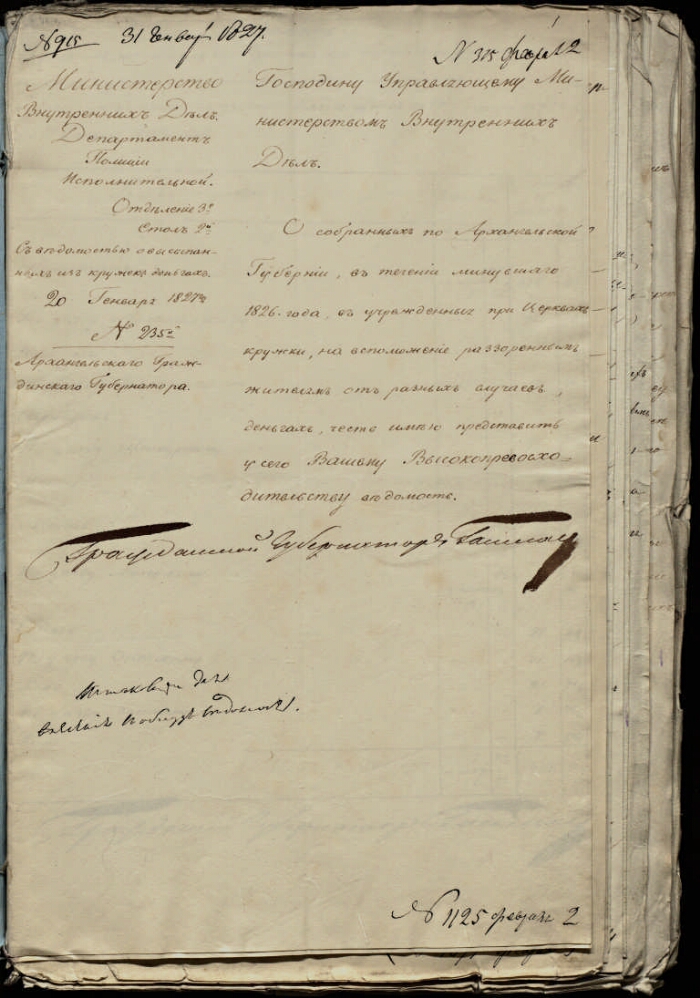 № 915 31 Генвар 1827.
№ 315 февраля 2
Министерство
Внутреннихъ Дѣлъ.
Департаментъ
Полиціи
Исполнительной.
Отдѣленіе 3е
Столъ 2й
Съ вѣдомостью о высыпан-
ныхъ изъ кружекъ деньгахъ.
20 Генваря 1827го
№ 235й
Архангельскаго Граж-
данскаго Губернатора.
Господину Управляющему Ми-
нистерствомъ Внутреннихъ
Дѣлъ.
О собранныхъ по Архангельской
Губерніи, въ теченіи минувшаго
1826. года, въ учрежденныя при Церквахъ
кружки, на вспоможеніе раззореннымъ
жителямъ отъ разныхъ случаевъ,
деньгахъ, честь имѣю представить
у сего Вашему Высокопревосхо-
дительству вѣдомость.
Гражданской Губернаторъ
№ 1125 февраля 2